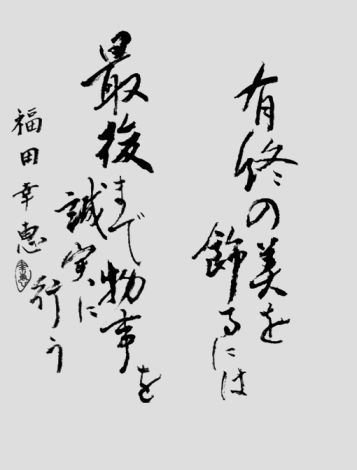 有終の美を
飾るには
最後まで物事を
誠実に
行う
福田幸惠